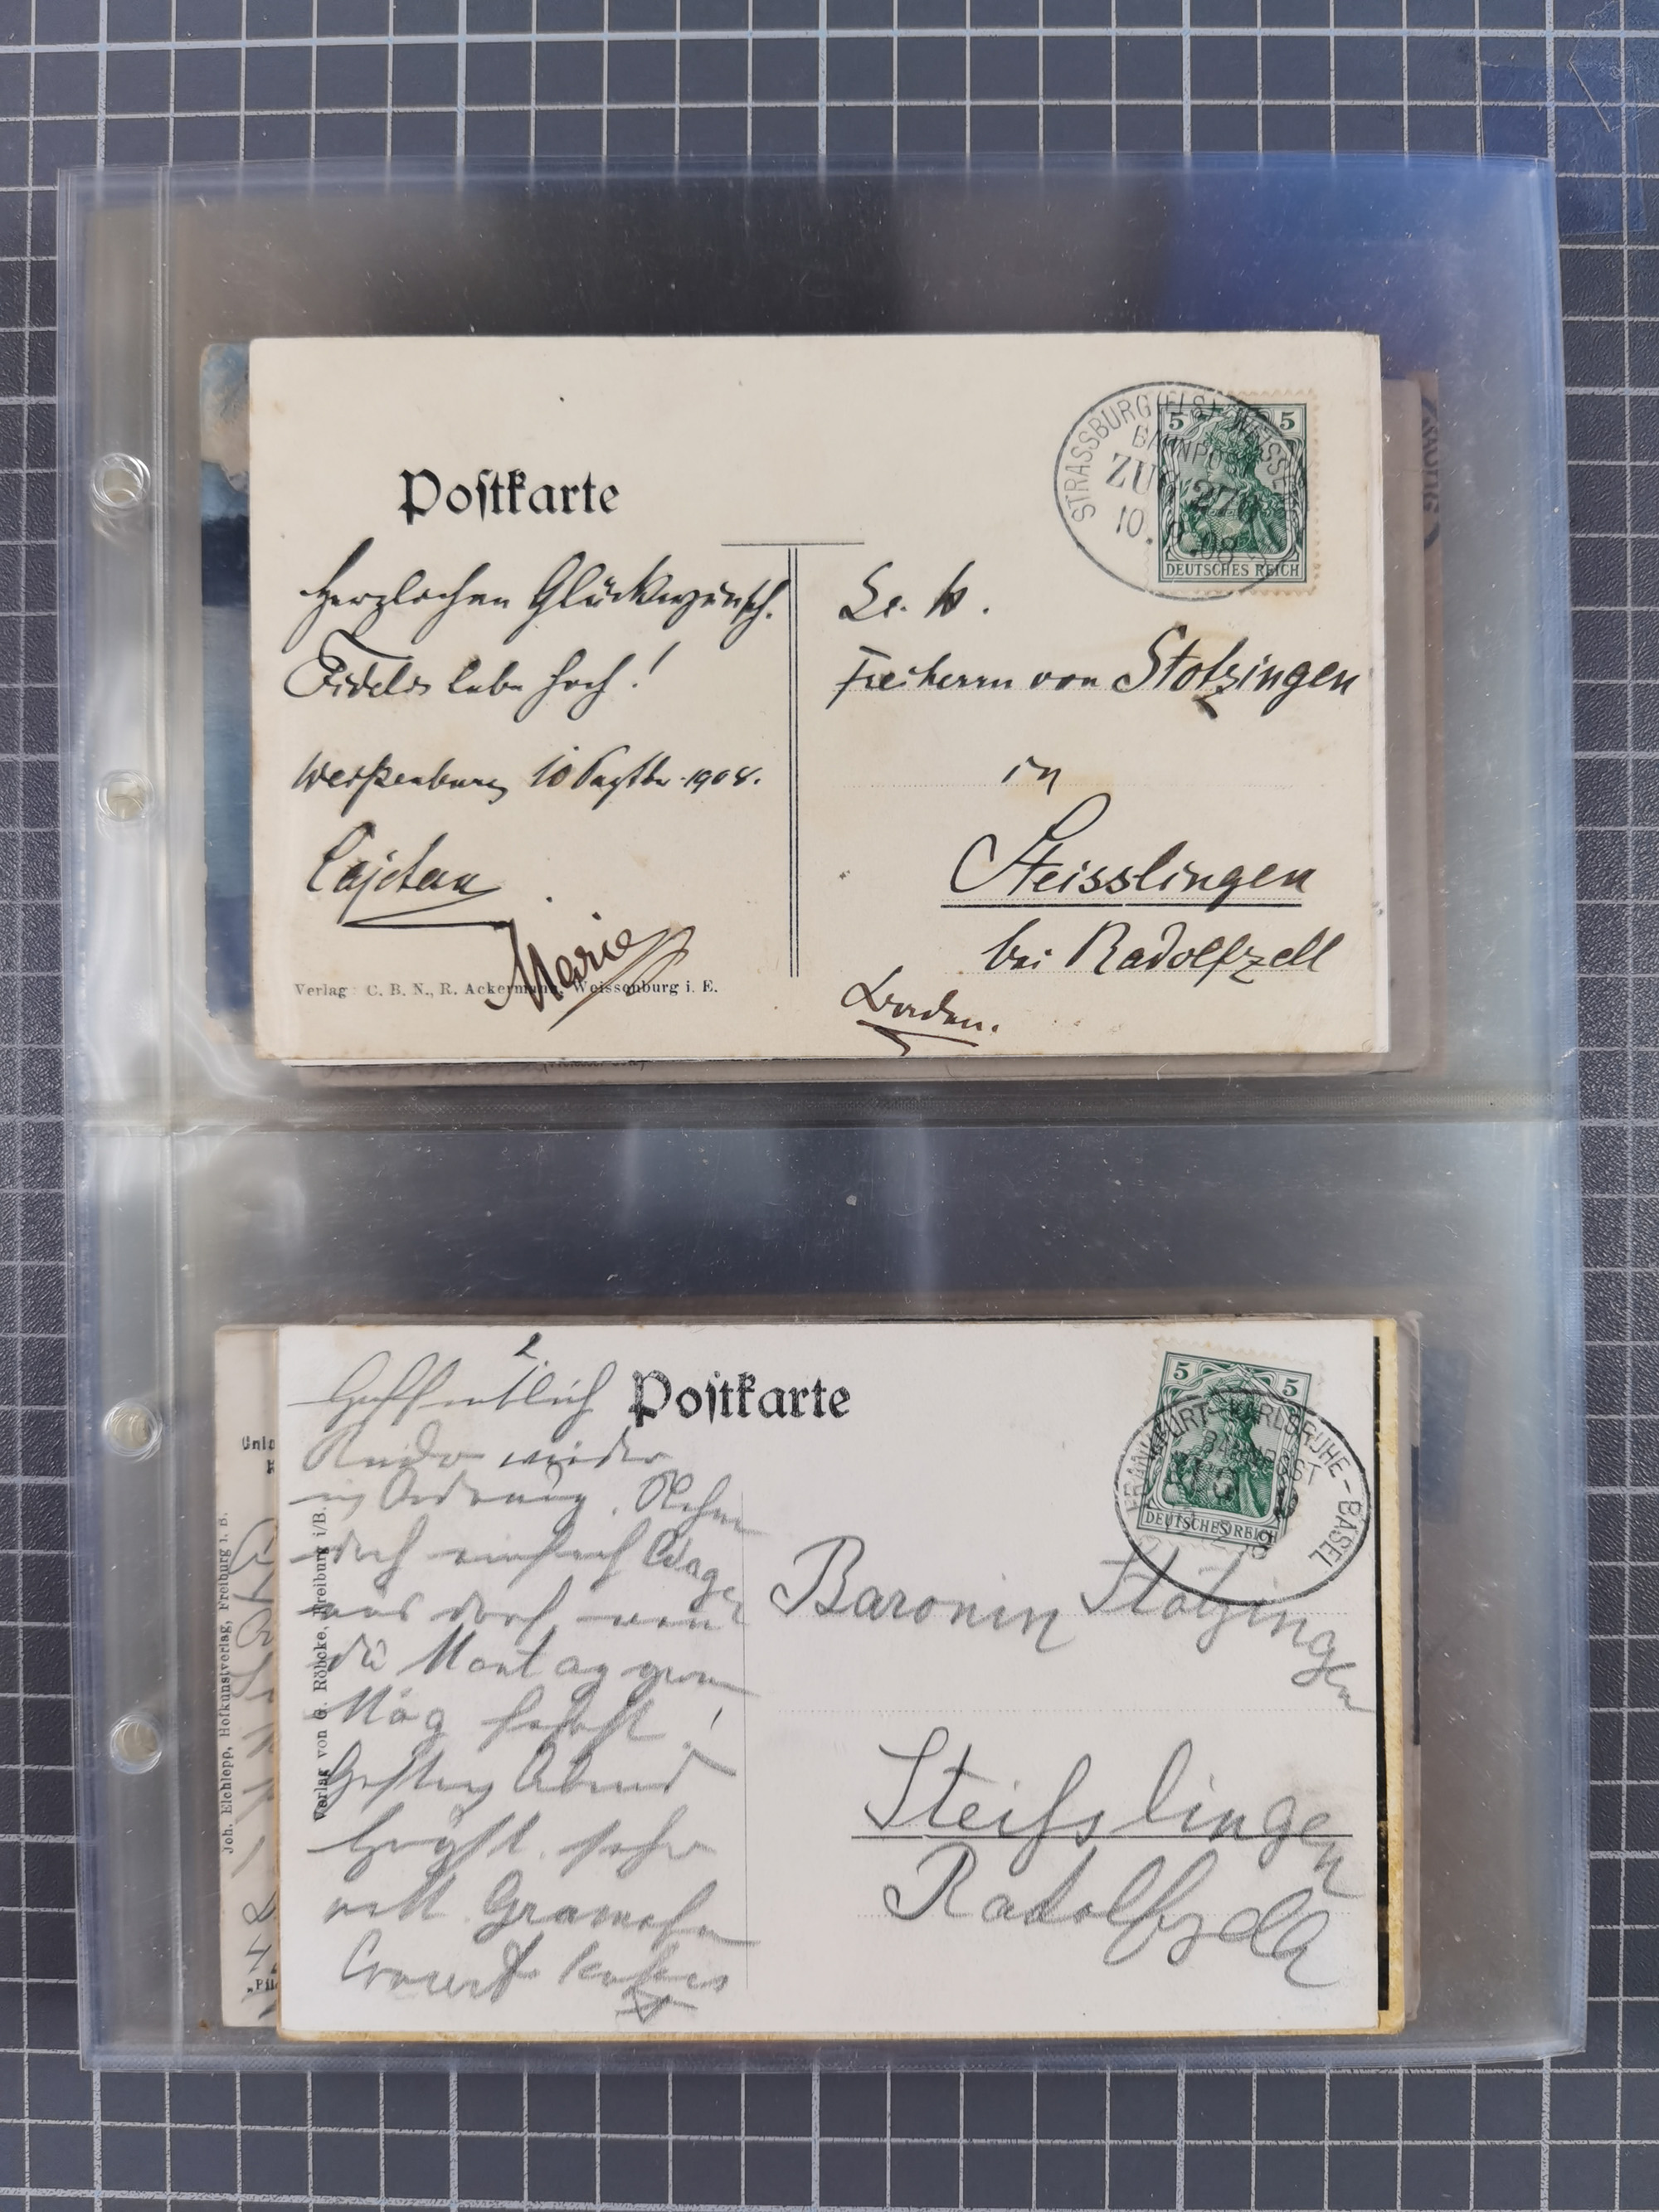 Postkarte
STRASSBURG (ELS)-WEISSEN
BAHNPOST
ZUG 276
10. 9. 08
5 5
DEUTSCHES REICH
Herzlichen Glückwunsch.
Fidelis lebe hoch!
Weißenburg 10 Septbr. 1908.
Cajetan
Marie
Verlag C. B. N., R. Ackermann, Weissenburg i. E.
Sr. H.
Freiherrn von Stotzingen
in
Steisslingen
bei Radolfzell
Baden.
Postkarte
5 5
DEUTSCHES REICH
FRANKFURT-KARLSRUHE-BASEL
BAHNPOST
ZUG
2
Hoffentlich
wieder
in Ordnung. Nehme
doch einfach Wagen
aus dorf wenn
die Montag
Mög !
Gestern Abend
sehr
nett Gramofon
Concert
Verlag von G. Röbcke, Freiburg i/B.
Baronin Stotzingen
Steisslingen
Radolfzell
Joh. Elchlepp, Hofkunstverlag, Freiburg i. B.